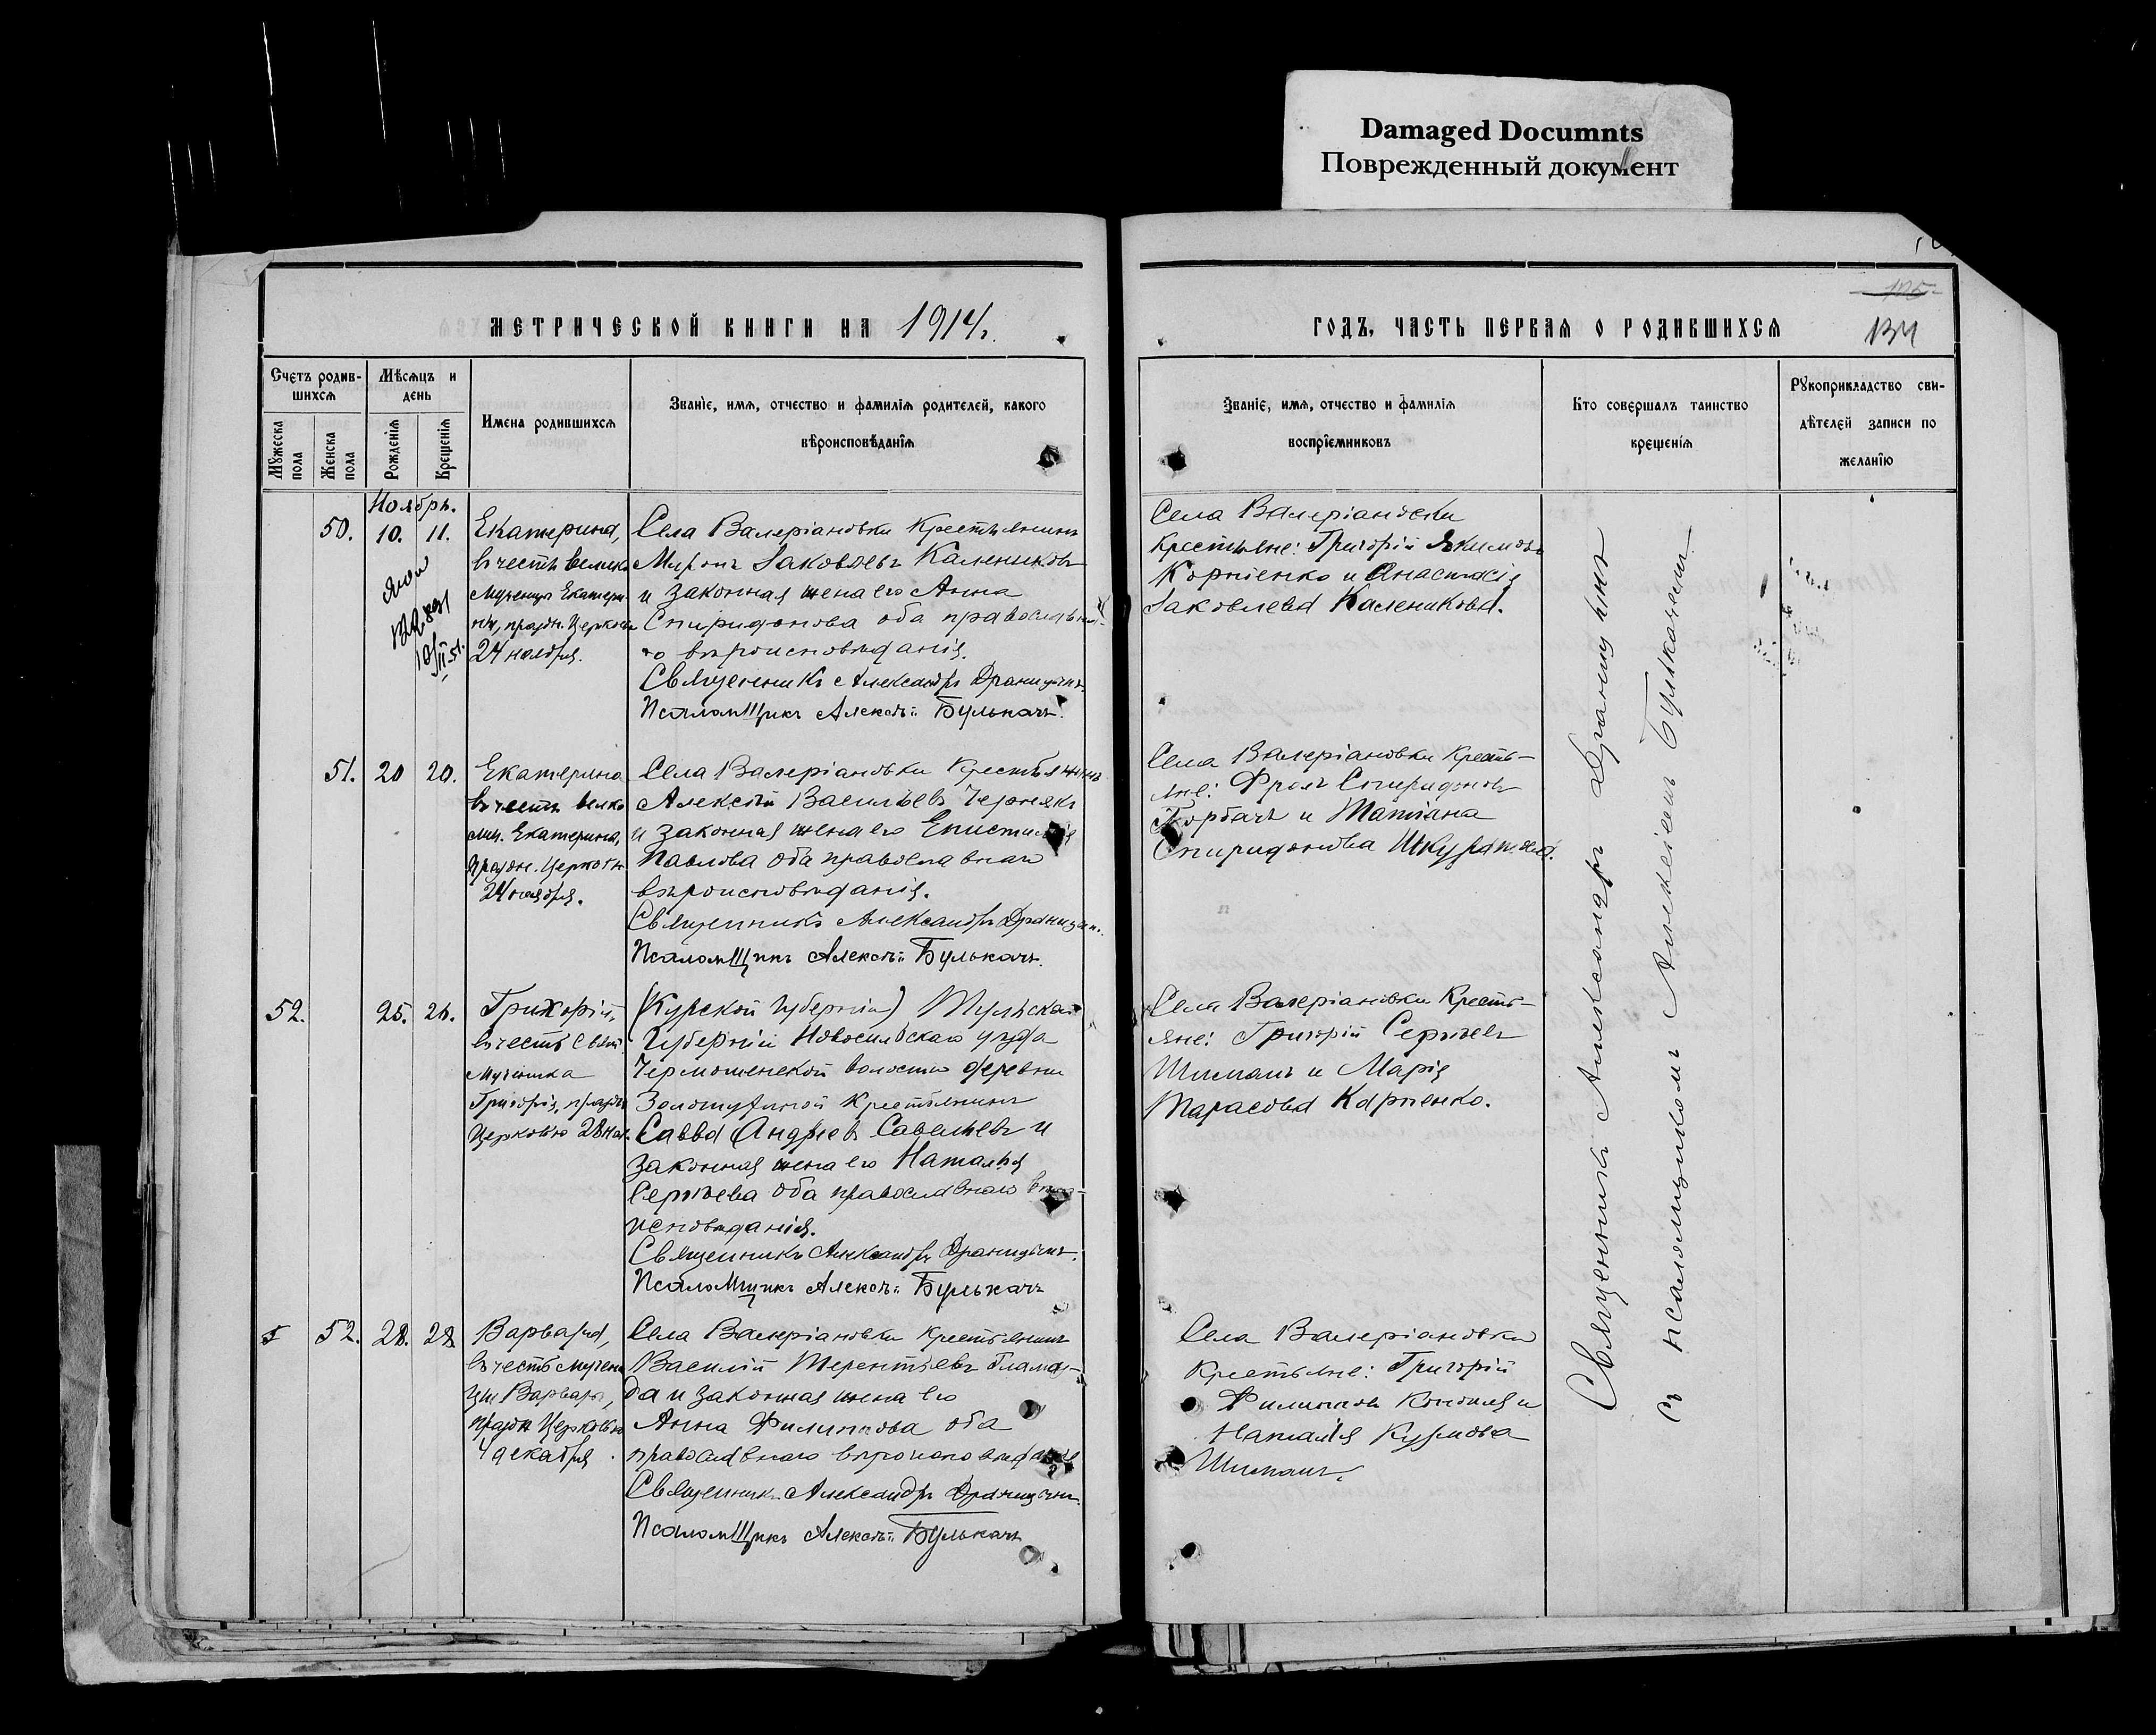 Damaged Documnts
Поврежденный документ
МЕТРИЧЕСКОЙ КНИГИ НА 1914.
ГОДЪ, ЧАСТЬ ПЕРВАЯ О РОДИВШИХСЯ
134
Счетъ родив-
шихся
Мужеска пола
Женска пола
Мѣсяцъ и
день
Рожденія
Крещенія
Имена родившихся
Званіе, имя, отчество и фамилія родителей, какого
вѣроисповѣданія
Званіе, имя, отчество и фамилія
воспріемниковъ
Кто совершалъ таинство
крещенія
Рукоприкладство сви-
дѣтелей записи по
желанію
Ноябрь.
50. 10. 11.
Екатерина,
въ честь велико
мученицы Екатери-
ны, праздн. Церковью
24 ноября.
Села Валеріановки Крестьянинъ
Миронъ Іаковлевъ Калениковъ
и законная жена его Анна
Спиридонова оба православна-
го вѣроисповѣданія.
Священникъ Александръ Драницынъ.
Псаломщикъ Алексѣй Булькачъ.
Села Валеріановки
Крестьяне: Григорій Якимовъ
Корніенко и Анастасія
Іаковлева Каленикова.
51. 20 20.
Екатерина
въ честь велико
муч. Екатерины,
праздн. Церковью
24 ноября.
Села Валеріановки Крестьянинъ
Алексѣй Васильевъ Чернякъ
и законная жена его Епистимія
Павлова оба православнаго
вѣроисповѣданія.
Священникъ Александръ Драницын.
Псаломщикъ Алексѣй Булькачъ.
Села Валеріановки Кресть-
яне: Фролъ Спиридоновъ
Горбачъ и Татіана
Спиридонова
52. 25. 26.
Григорій,
въ честь Свят.
Мученика
Григорія, праздн
Церковью 28 ноя.
(Курской Губерніи) Тульской
Губерніи Новосильскаго уѣзда
Чермошенской волости деревни
Золотухиной Крестьянинъ
Савва Андреевъ Савельевъ и
законная жена его Наталья
Сергѣева оба православнаго вѣро-
исповѣданія.
Священникъ Александръ Драницынъ.
Псаломщикъ Алексѣй Булькачъ
Села Валеріановки Кресть-
яне: Григорій Сергѣевъ
Шиманъ и Марія
Тарасова Карпенко.
52. 28. 28.
Варвара,
въ честь мучени
цы Варвары,
праздн Церковью
4 декабря.
Села Валеріановки Крестьянинъ
Василій Терентьевъ Глама-
да и законная жена его
Анна Филиппова оба
православнаго вѣроисповѣданія
Священникъ Александръ Драницынъ.
Псаломщикъ Алексѣй Булькачъ
Села Валеріановки
Крестьяне: Григорій
Филиппов и
Наталія Кузмова
Шиманъ.
Священникъ Александръ Драницынъ
съ псаломщикомъ Алексѣемъ Булькачемъ